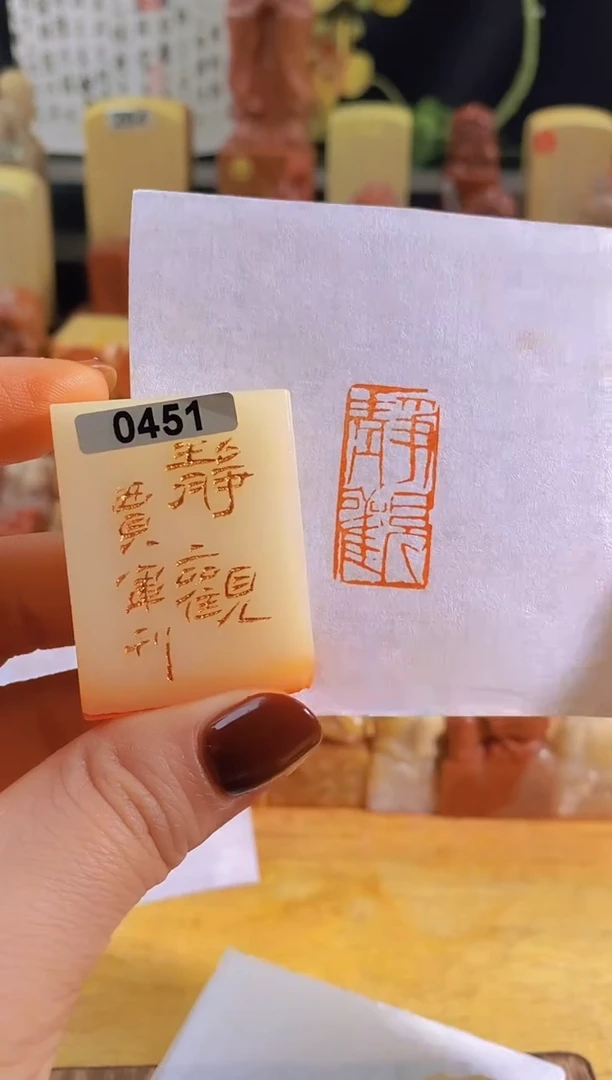 0451
靜觀
刊
靜觀